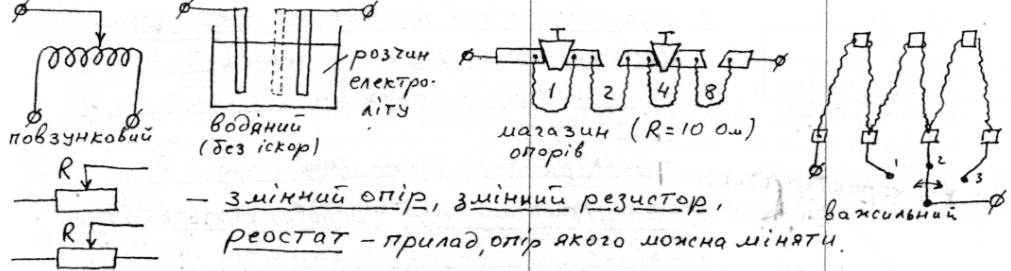 повзунковий
водяний
(без іскор)
розчин
електро-
літу
1 2 4 8
магазин (R=10 Ом)
опорів
1 2 3
важильний
R
R
— змінний опір, змінний резистор,
реостат – прилад, опір якого можна міняти.